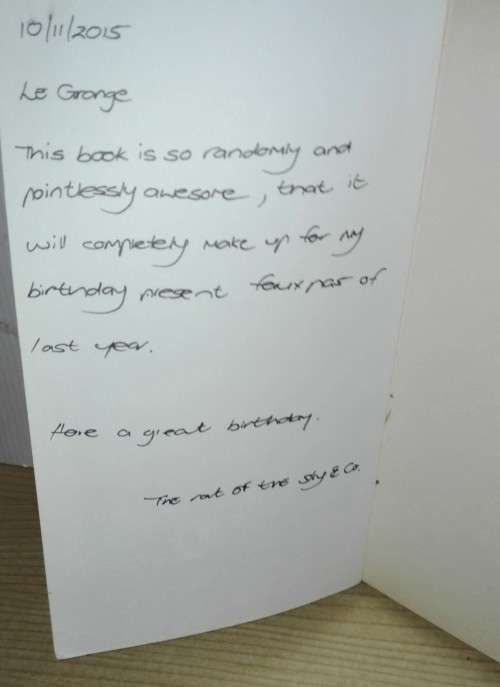 10/11/2015
Le Grange
This book is so randomly and
pointlessly awesome, that it
will completely make up for my
birthday present faux pas of
last year.
Have a great birthday.
The rat of the sky & Co.